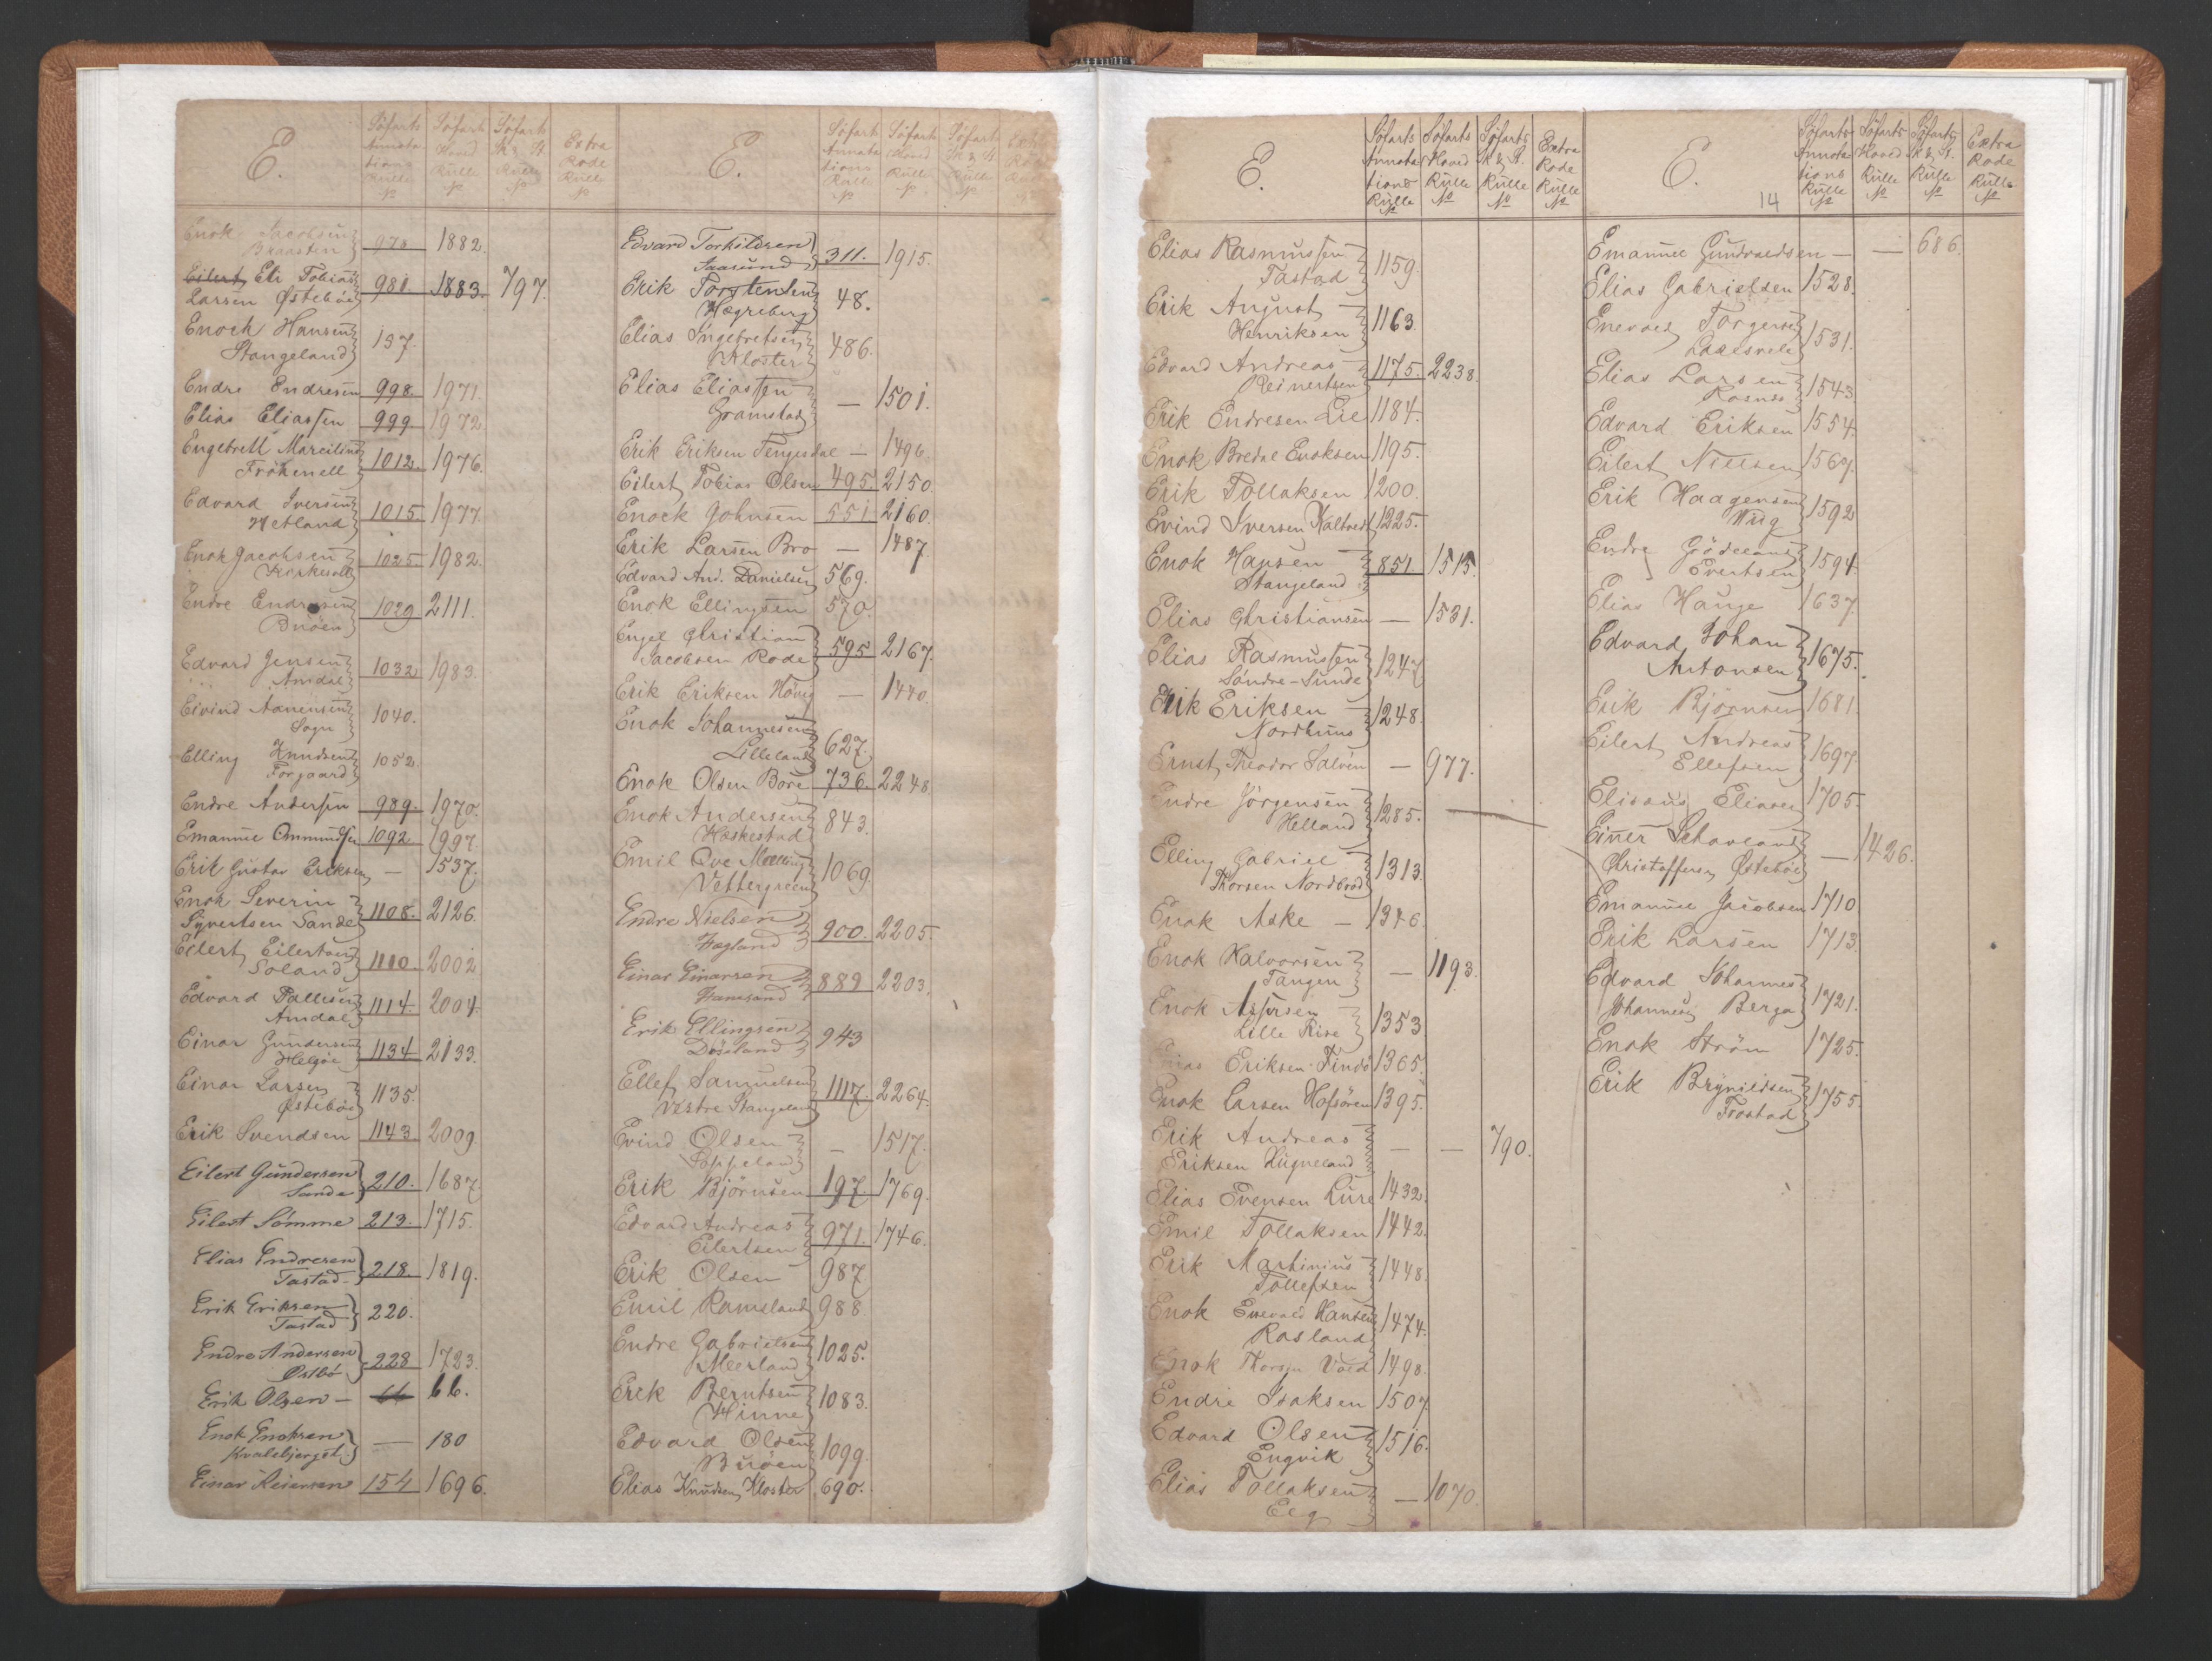 E.
Søfarts Annotations Rulle No
Søfarts Hoved Rulle No
Søfarts Sk & St Rulle No
Extra Rode Rulle No
Enok Jacobsen 978 1882.
Eilert, Eli Tobias
Larsen Østebøe 981. 1883. 797.
Enock Hansen
Stangeland 197.
Endre Endresen 998. 1971.
Elias Eliassen 999. 1972.
Engebrett
1012. 1976.
Edvard Iversen
Hetland 1015. 1977.
Enok Jacobsen
1025. 1982.
Endre Endresen
Buöen 1029 2111.
Edvard Jensen
Amdal 1032 1983.
Eivind
Sogn 1040.
Elling Knudsen
1052.
Endre Andersen 989. 1970.
Emanuel Ommundsen 1092. 1997.
Erik Gustav Eriksen — 1537.
Enok Severin
Syvertsen Sande 1108. 2126.
Eilert Eilertsen
Soland 1110. 2002
Edvard Pallesen
Amdal 1114. 2004.
Einar Gundersen
Helgøe 1134 2133.
Einar Larsen
Østebøe 1135.
Erik Svendsen 1143. 2009.
Eilert Gundersen
Sande 210. 1687
Eilert Sömme 213. 1715.
Elias Endresen
Tastad 218. 1819.
Erik Eriksen
Tastad 220.
Endre Andersen
Østbö 228 1723.
Erik Olsen — 66 66.
Enok Enoksen
Kvalebjerget — 180
Einar Reiersen 154 1696.
E.
Søfarts Annotations Rulle No
Søfarts Hoved Rulle No
Søfarts Sk & St Rulle No
Edvard Torkildsen
311. 1915.
Erik Torstensen
48.
Elias Ingebretsen
Kloster 486.
Elias Eliassen
Gramstad — 1501.
Erik Eriksen Tengesdal — 1496.
Eilert Tobias Olsen 495. 2150
Enock Johnsen 551 2160.
Erik Larsen Bro — 1487.
Edvard And. Danielsen 569.
Enok Ellingsen 570
Engel Christian
Jacobsen Rode 595 2167.
Erik Eriksen — 1440.
Enok Johannesen
Lilleland 627.
Enok Olsen Bore 736. 2248
Enok Andersen
Haskestad 843.
Emil Ove
Vettergreen 1069.
Endre Nielsen
Fogland 900. 2205.
Einar Einarsen
889 2203.
Erik Ellingsen
943
Ellef Samuelsen
Vestre Stangeland 1117. 2264.
Evind Olsen
— 1517.
Erik Björnsen 197. 1769.
Edvard Andreas
Eilertsen 971. 1746.
Erik Olsen 987
Emil Ramsland 988.
Endre Gabrielsen
Meerland 1025.
Erik Berntsen
Hinne 1083.
Edvard Olsen
Buöen 1099.
Elias Knudsen Kloster 690.
E.
Søfarts Annotations Rulle No
Søfarts Hoved Rulle No
Søfarts Sk & St. Rulle No
Extra Rode Rulle No
Elias Rasmussen
Tastad 1159.
Erik August
Henriksen 1163.
Edvard Andreas
Reinertsen 1175. 2238.
Erik Endresen Lie 1184.
Enok Bredal Enoksen 1195.
Erik Tollaksen 1200.
Evind Iversen Kaltvedt 1225.
Enok Hansen
Stangeland 851 1515.
Elias Christiansen — 1531.
Elias Rasmussen
Söndre-Sunde 1247
Erik Eriksen
1248.
Ernst Theodor Salven — 977.
Endre Jörgensen
Helland 1285.
Elling Gabriel
Thorsen Nordbröd 1313.
Enok Aske — 1346.
Enok Halvorsen
Tangen — 1193.
Enok Assersen
Lille Rise 1353
Elias Eriksen Findö 1365.
Enok Larsen Hofsören 1395.
Erik Andreas
Eriksen — — 790.
Elias Evensen Lure 1432.
Emil Tollaksen 1442.
Erik Martinius
Tollefsen 1448.
Enok Enevald Hansen
Rosland 1474.
Enok Thorsen 1498.
Endre Isaksen 1507.
Edvard Olsen
Engvik 1516.
Elias Tollaksen
Elg — 1070.
E.
14
Søfarts Annotations Rulle No
Søfarts Hoved Rulle No
Søfarts Sk & St. Rulle No
Extra Rode Rulle No
Emanuel Gundvaldsen — — 686.
Elias Gabrielsen 1528.
Enevald Torgersen
1531.
Elias Larsen
1543
Edvard Eriksen 1554.
Eilert Nielsen 1569.
Erik Haagensen
Wiig 1592
Endre Grödeland
Evertsen 1594.
Elias Hauge 1637.
Edvard Johan
Antonsen 1675.
Erik Björnsen 1681.
Eilert Andreas
Ellefsen 1697.
Elisæus Eliasen 1705.
Einer Schavland
Christoffersen Østebøe — 1426.
Emanuel Jacobsen 1710
Erik Larsen 1713.
Edvard Johannes
Johannesen Berga 1721.
Enok Ström 1725.
Erik Brynildsen
Frostad 1755.